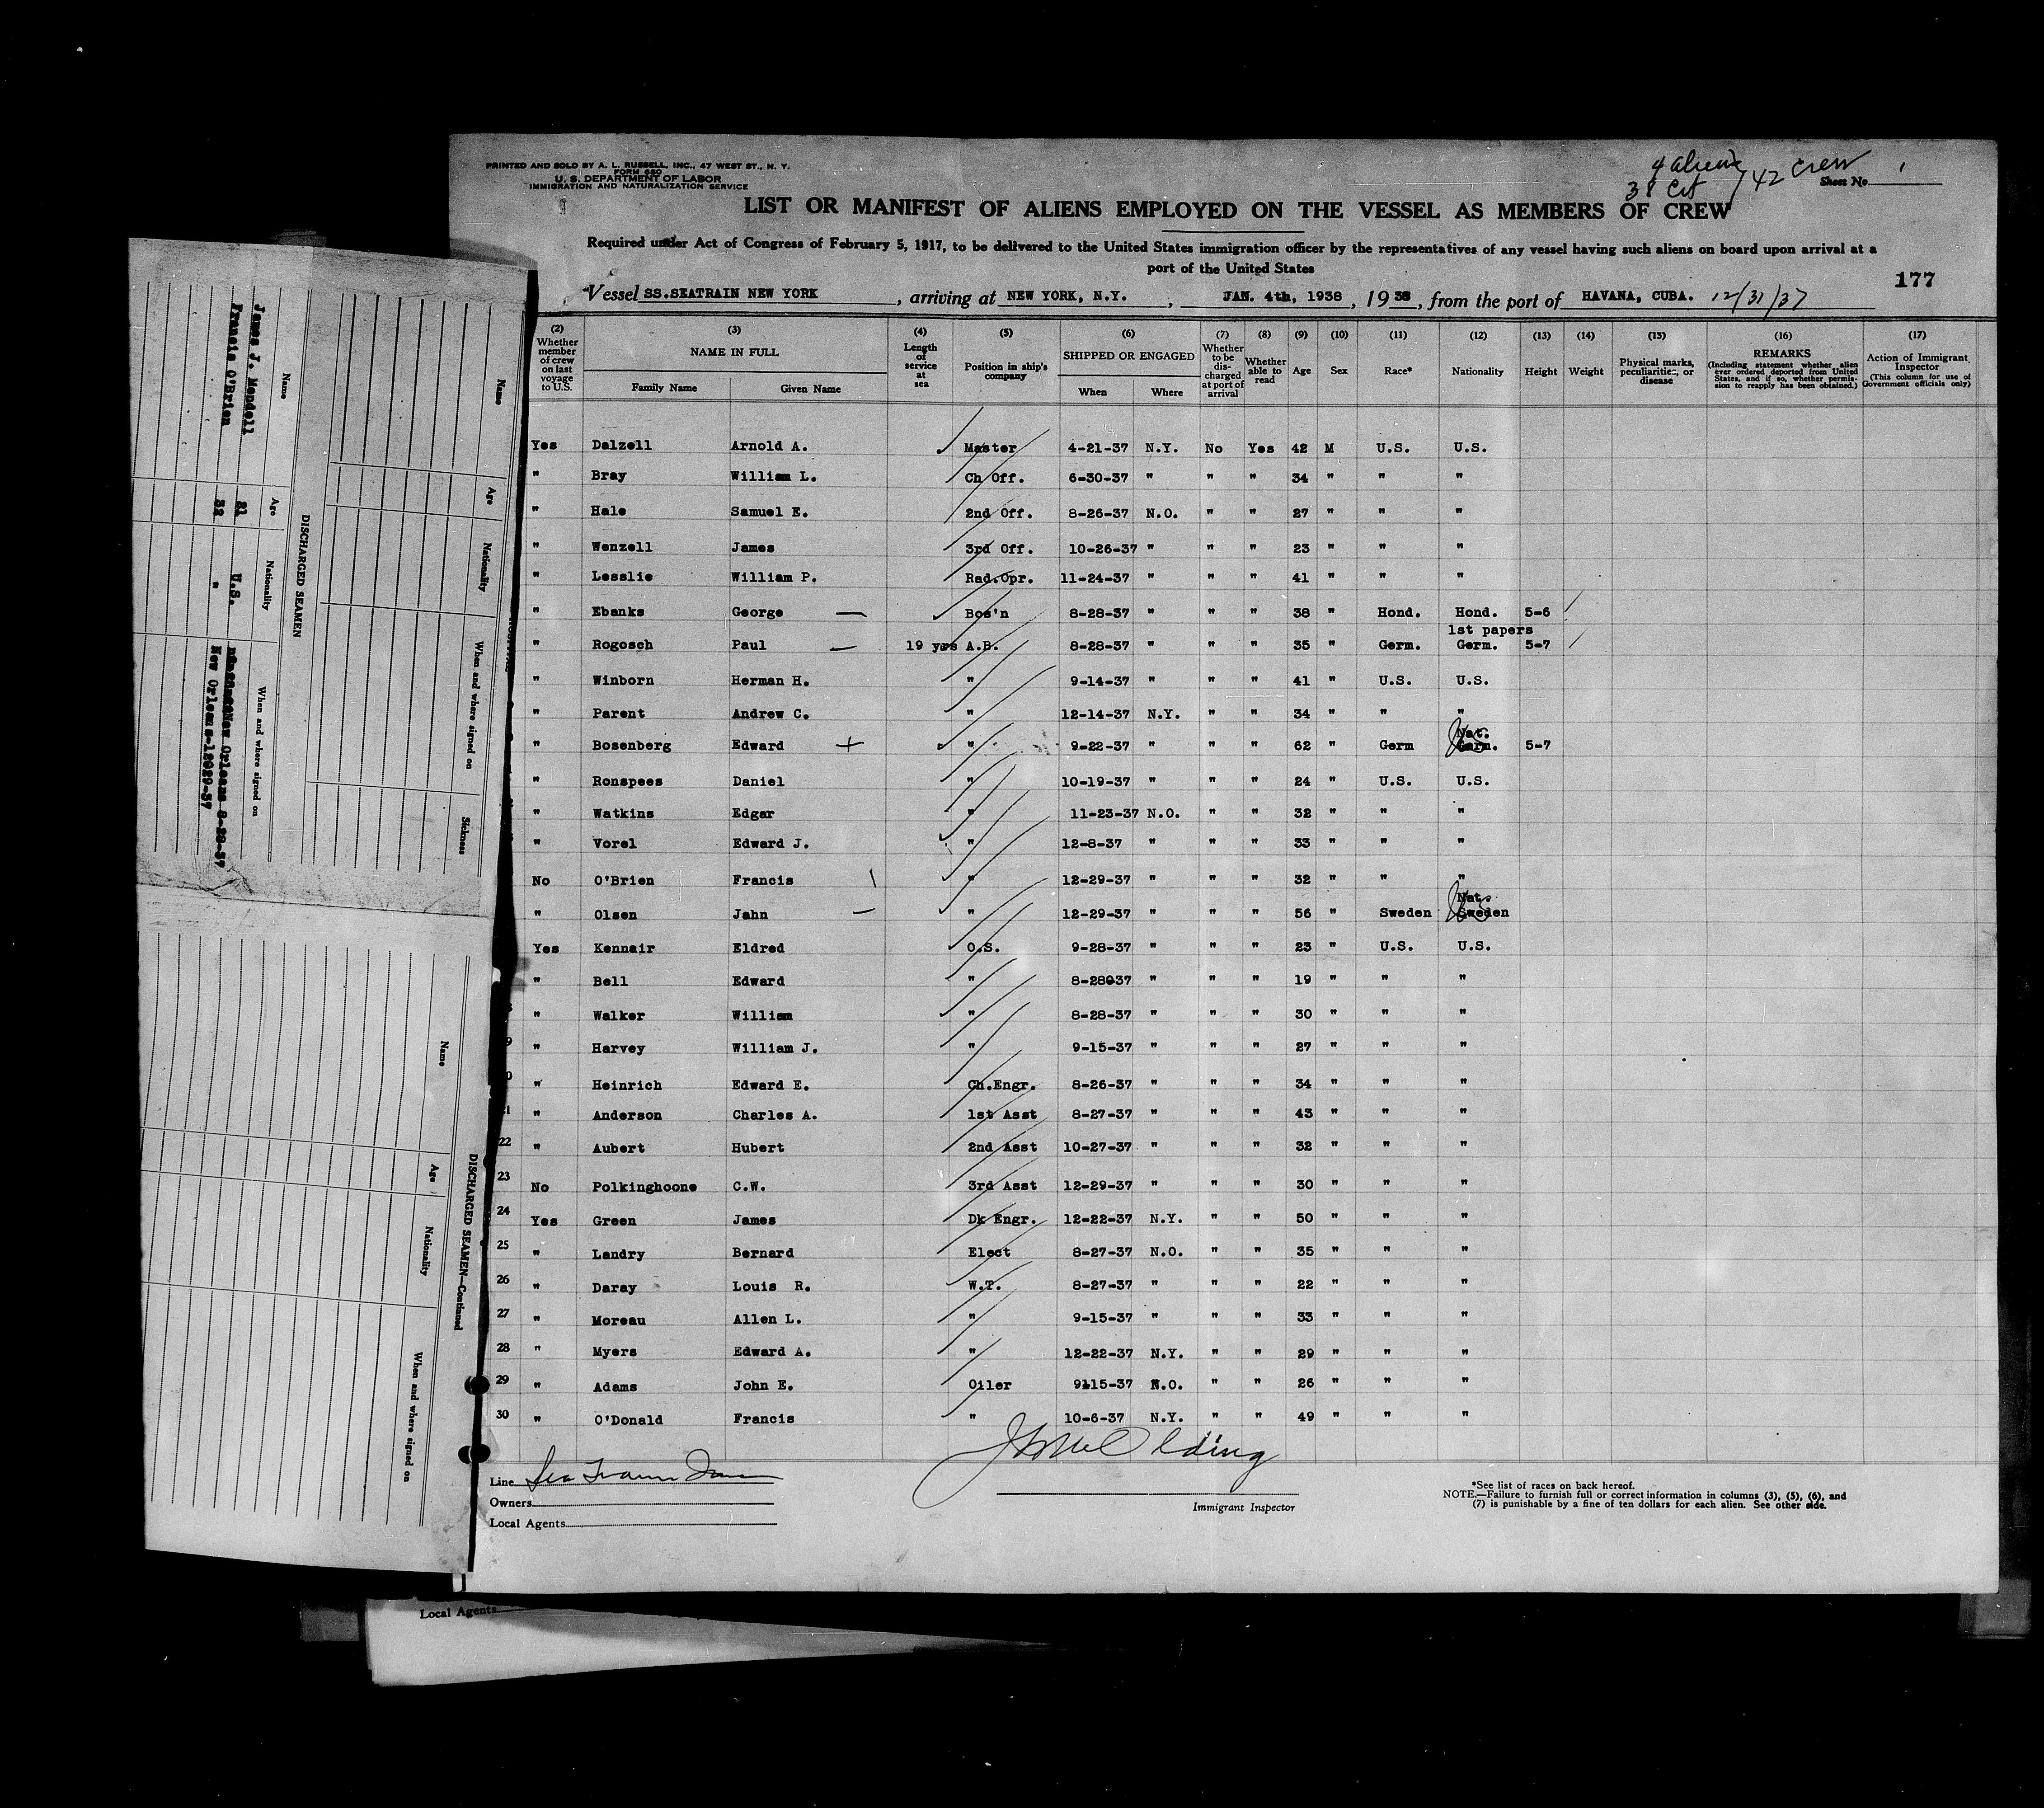 PRINTED AND SOLD BY A. L. RUSSELL, INC., 47 WEST ST., N. Y.
FORM 680
U. S. DEPARTMENT OF LABOR
IMMIGRATION AND NATURALIZATION SERVICE
4 aliens
38 Cit / 42 crew
Sheet No. 1
LIST OR MANIFEST OF ALIENS EMPLOYED ON THE VESSEL AS MEMBERS OF CREW
Required under Act of Congress of February 5, 1917, to be delivered to the United States immigration officer by the representatives of any vessel having such aliens on board upon arrival at a
port of the United States
177
Vessel SS.SEATRAIN NEW YORK, arriving at NEW YORK, N.Y., JAN. 4th, 1938, 1938, from the port of HAVANA, CUBA. 12/31/37
(2) (3) (4) (5) (6) (7) (8) (9) (10) (11) (12) (13) (14) (15) (16) (17)
Whether member of crew on last voyage to U.S. NAME IN FULL Family Name Given Name Length of service at sea Position in ship's company SHIPPED OR ENGAGED When Where Whether to be discharged at port of arrival Whether able to read Age Sex Race* Nationality Height Weight Physical marks, peculiarities, or disease REMARKS (Including statement whether alien ever ordered deported from United States, and if so, whether permission to reapply has been obtained.) Action of Immigrant Inspector (This column for use of Government officials only)
Yes Dalzell Arnold A. Master 4-21-37 N.Y. No Yes 42 M U.S. U.S.
" Bray William L. Ch Off. 6-30-37 " " " 34 " " "
" Hale Samuel E. 2nd Off. 8-26-37 N.O. " " 27 " " "
" Wenzell James 3rd Off. 10-26-37 " " " 23 " " "
" Lesslie William P. Rad.Opr. 11-24-37 " " " 41 " " "
" Ebanks George Bos'n 8-28-37 " " " 38 " Hond. Hond. 5-6
1st papers
" Rogosch Paul 19 yrs A.B. 8-28-37 " " " 35 " Germ. Germ. 5-7
" Winborn Herman H. " 9-14-37 " " " 41 " U.S. U.S.
" Parent Andrew C. " 12-14-37 N.Y. " " 34 " " "
Nat.
" Bosenberg Edward " 9-22-37 " " " 62 " Germ Germ. 5-7
" Ronspees Daniel " 10-19-37 " " " 24 " U.S. U.S.
" Watkins Edgar " 11-23-37 N.O. " " 32 " " "
" Vorel Edward J. " 12-8-37 " " " 33 " " "
No O'Brien Francis " 12-29-37 " " " 32 " " "
Nat.
" Olsen Jahn " 12-29-37 " " " 56 " Sweden Sweden
Yes Kennair Eldred O.S. 9-28-37 " " " 23 " U.S. U.S.
" Bell Edward " 8-28037 " " " 19 " " "
" Walker William " 8-28-37 " " " 30 " " "
9 " Harvey William J. " 9-15-37 " " " 27 " " "
0 " Heinrich Edward E. Ch.Engr. 8-26-37 " " " 34 " " "
21 " Anderson Charles A. 1st Asst 8-27-37 " " " 43 " " "
22 " Aubert Hubert 2nd Asst 10-27-37 " " " 32 " " "
23 No Polkinghoone C.W. 3rd Asst 12-29-37 " " " 30 " " "
24 Yes Green James Dk Engr. 12-22-37 N.Y. " " 50 " " "
25 " Landry Bernard Elect 8-27-37 N.O. " " 35 " " "
26 " Daray Louis R. W.T. 8-27-37 " " " 22 " " "
27 " Moreau Allen L. " 9-15-37 " " " 33 " " "
28 " Myers Edward A. " 12-22-37 N.Y. " " 29 " " "
29 " Adams John E. Oiler 9115-37 N.O. " " 26 " " "
30 " O'Donald Francis " 10-6-37 N.Y. " " 49 " " "
Line
Owners
Local Agents
Immigrant Inspector
*See list of races on back hereof.
NOTE.—Failure to furnish full or correct information in columns (3), (5), (6), and
(7) is punishable by a fine of ten dollars for each alien. See other side.
Local Agents
Name Age Nationality When and where signed on Sickness
DISCHARGED SEAMEN
Name Age Nationality When and where signed on
James J. Mendell 21 U.S. New Orleans 8-28-37
Francis O'Brien 32 " New Orleans-12029-37
DISCHARGED SEAMEN—Continued
Name Age Nationality When and where signed on